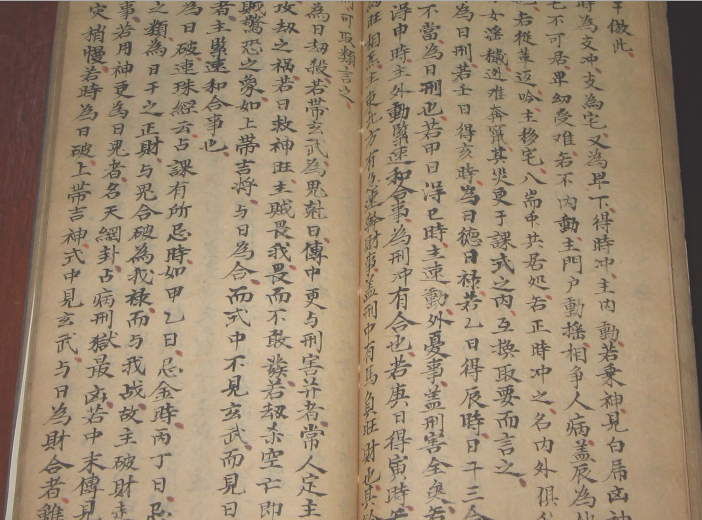 干倣此
時為支冲支為宅又為卑下得時冲主內動若乘神見白虎凶神
宅不可居卑幼受难若不內動主門户動摇相争人病盖辰為
若推葉迈哈主移宅八耑中共居处若正時冲之名内外俱
如淫穢逃难奔竄其災更于課式之内互換取要而言之
為日刑若壬日得亥時為日德日禄若乙日得辰時日干三合
不當為日刑也若甲日得巳時主速動外憂事盖刑害全矣若
得申時主外動緊速和合事為刑冲有合也若庚日得寅時
為旺相主東北方有財事盖刑中有馬負旺財也
可取類言之
為日劫殺若帶玄武為鬼尅日傳中更与刑害并者常人定主
攻劫之祸若日救神旺主贼畏我畏而不敢發若劫杀空亡即
贼驚恐之象如上帶吉將与日為合而式中不見玄武而見日
者主緊速和合事也
為日破連珠經云占課有所忌時如甲乙日忌金時丙丁日忌
之類為日干之正財与鬼合破為我禄而与我战故主破財
事若用神更為日鬼者名天網卦占病刑獄最凶若中末傳見
灾稍慢若時為日破上帶吉神式中見玄武与日為財合者雖